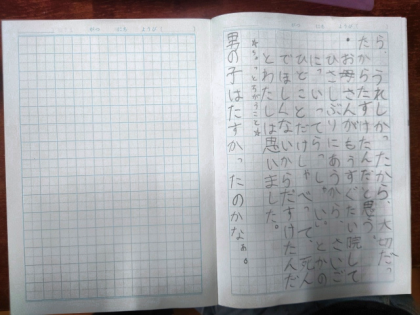 ら、うれしかったから、大切だっ
たからたすけたんだと思う。
・お母さんがもうすぐたい院して
ひさしぶりにあうから、さいご
に、いってらっしゃい、とかの
ひとことだけしゃべって、死ん
でほしくないからだすけたんだ
とわたしは思いました。
☆ちょっとちがうこと☆
男の子はたすかったのかなぁ。